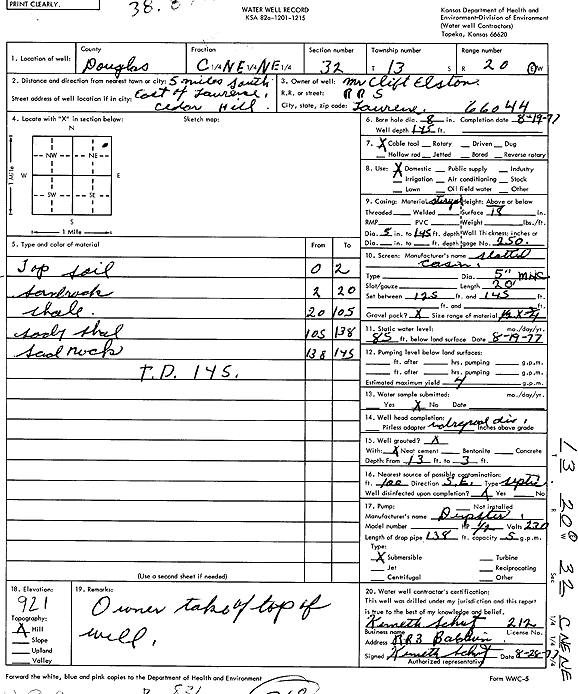 PRINT CLEARLY.
WATER WELL RECORD
KSA 82a-1201-1215
Kansas Department of Health and
Environment-Division of Environment
(Water well Contractors)
Topeka, Kansas 66620
1. Location of well:
County
Douglas
Fraction
C 1/4 NE 1/4 NE 1/4
Section number
32
Township number
T 13 S
Range number
R 20 E/W
2. Distance and direction from nearest town or city: 5 miles south
East of Laurence,
Street address of well location if in city: Cedar Hill.
3. Owner of well: Mr Clift Elston
R.R. or street: RR 5
City, state, zip code: Laurence, 66044
4. Locate with "X" in section below:
Sketch map:
N
NW NE
W E
SW SE
S
1 Mile
1 Mile
6. Bore hole dia. 8 in. Completion date 8-19-77
Well depth 145 ft.
7. X Cable tool Rotary Driven Dug
Hollow rod Jetted Bored Reverse rotary
8. Use: X Domestic Public supply Industry
Irrigation Air conditioning Stock
Lawn Oil field water Other
9. Casing: Material Height: Above or below
Threaded Welded Surface 18 in.
RMP PVC Weight lbs./ft.
Dia. 5 in. to 145 ft. depth Wall Thickness: inches or
Dia. in. to ft. depth gage No. 250.
5. Type and color of material
From To
Top soil 0 2
Sandrock 2 20
Shale. 20 105
Sady Shal 105 138
Sand rock 138 145
T.D. 145.
(Use a second sheet if needed)
10. Screen: Manufacturer's name slotted
casin.
Type Dia. 5"
Slot/gauze Length 20'
Set between 125 ft. and 145 ft.
ft. and ft.
Gravel pack? X Size range of material
11. Static water level: mo./day/yr.
85 ft. below land surface Date 8-19-77
12. Pumping level below land surfaces:
ft. after hrs. pumping g.p.m.
ft. after hrs. pumping g.p.m.
Estimated maximum yield 4 g.p.m.
13. Water sample submitted: mo./day/yr.
Yes X No Date
14. Well head completion:
Pitless adapter Inches above grade
15. Well grouted? X
With: X Neat cement Bentonite Concrete
Depth: From 13 ft. to 3 ft.
16. Nearest source of possible contamination:
ft. 100 Direction S.E. Type septic
Well disinfected upon completion? X Yes No
17. Pump: Not installed
Manufacturer's name Dempster.
Model number HP 1/2 Volts 230
Length of drop pipe 138 ft. capacity 5 g.p.m.
Type:
X Submersible Turbine
Jet Reciprocating
Centrifugal Other
18. Elevation:
921
Topography:
X Hill
Slope
Upland
Valley
19. Remarks:
Owner take of top of
well.
20. Water well contractor's certification:
This well was drilled under my jurisdiction and this report
is true to the best of my knowledge and belief.
Kenneth Schut 212
Business name License No.
Address RR3 Baldwin
Signed Kenneth Schut Date 8-28-77
Authorized representative
Forward the white, blue and pink copies to the Department of Health and Environment
Form WWC-5
13 20 E 32 C NE NE
T R W Sec 1/4 1/4 1/4